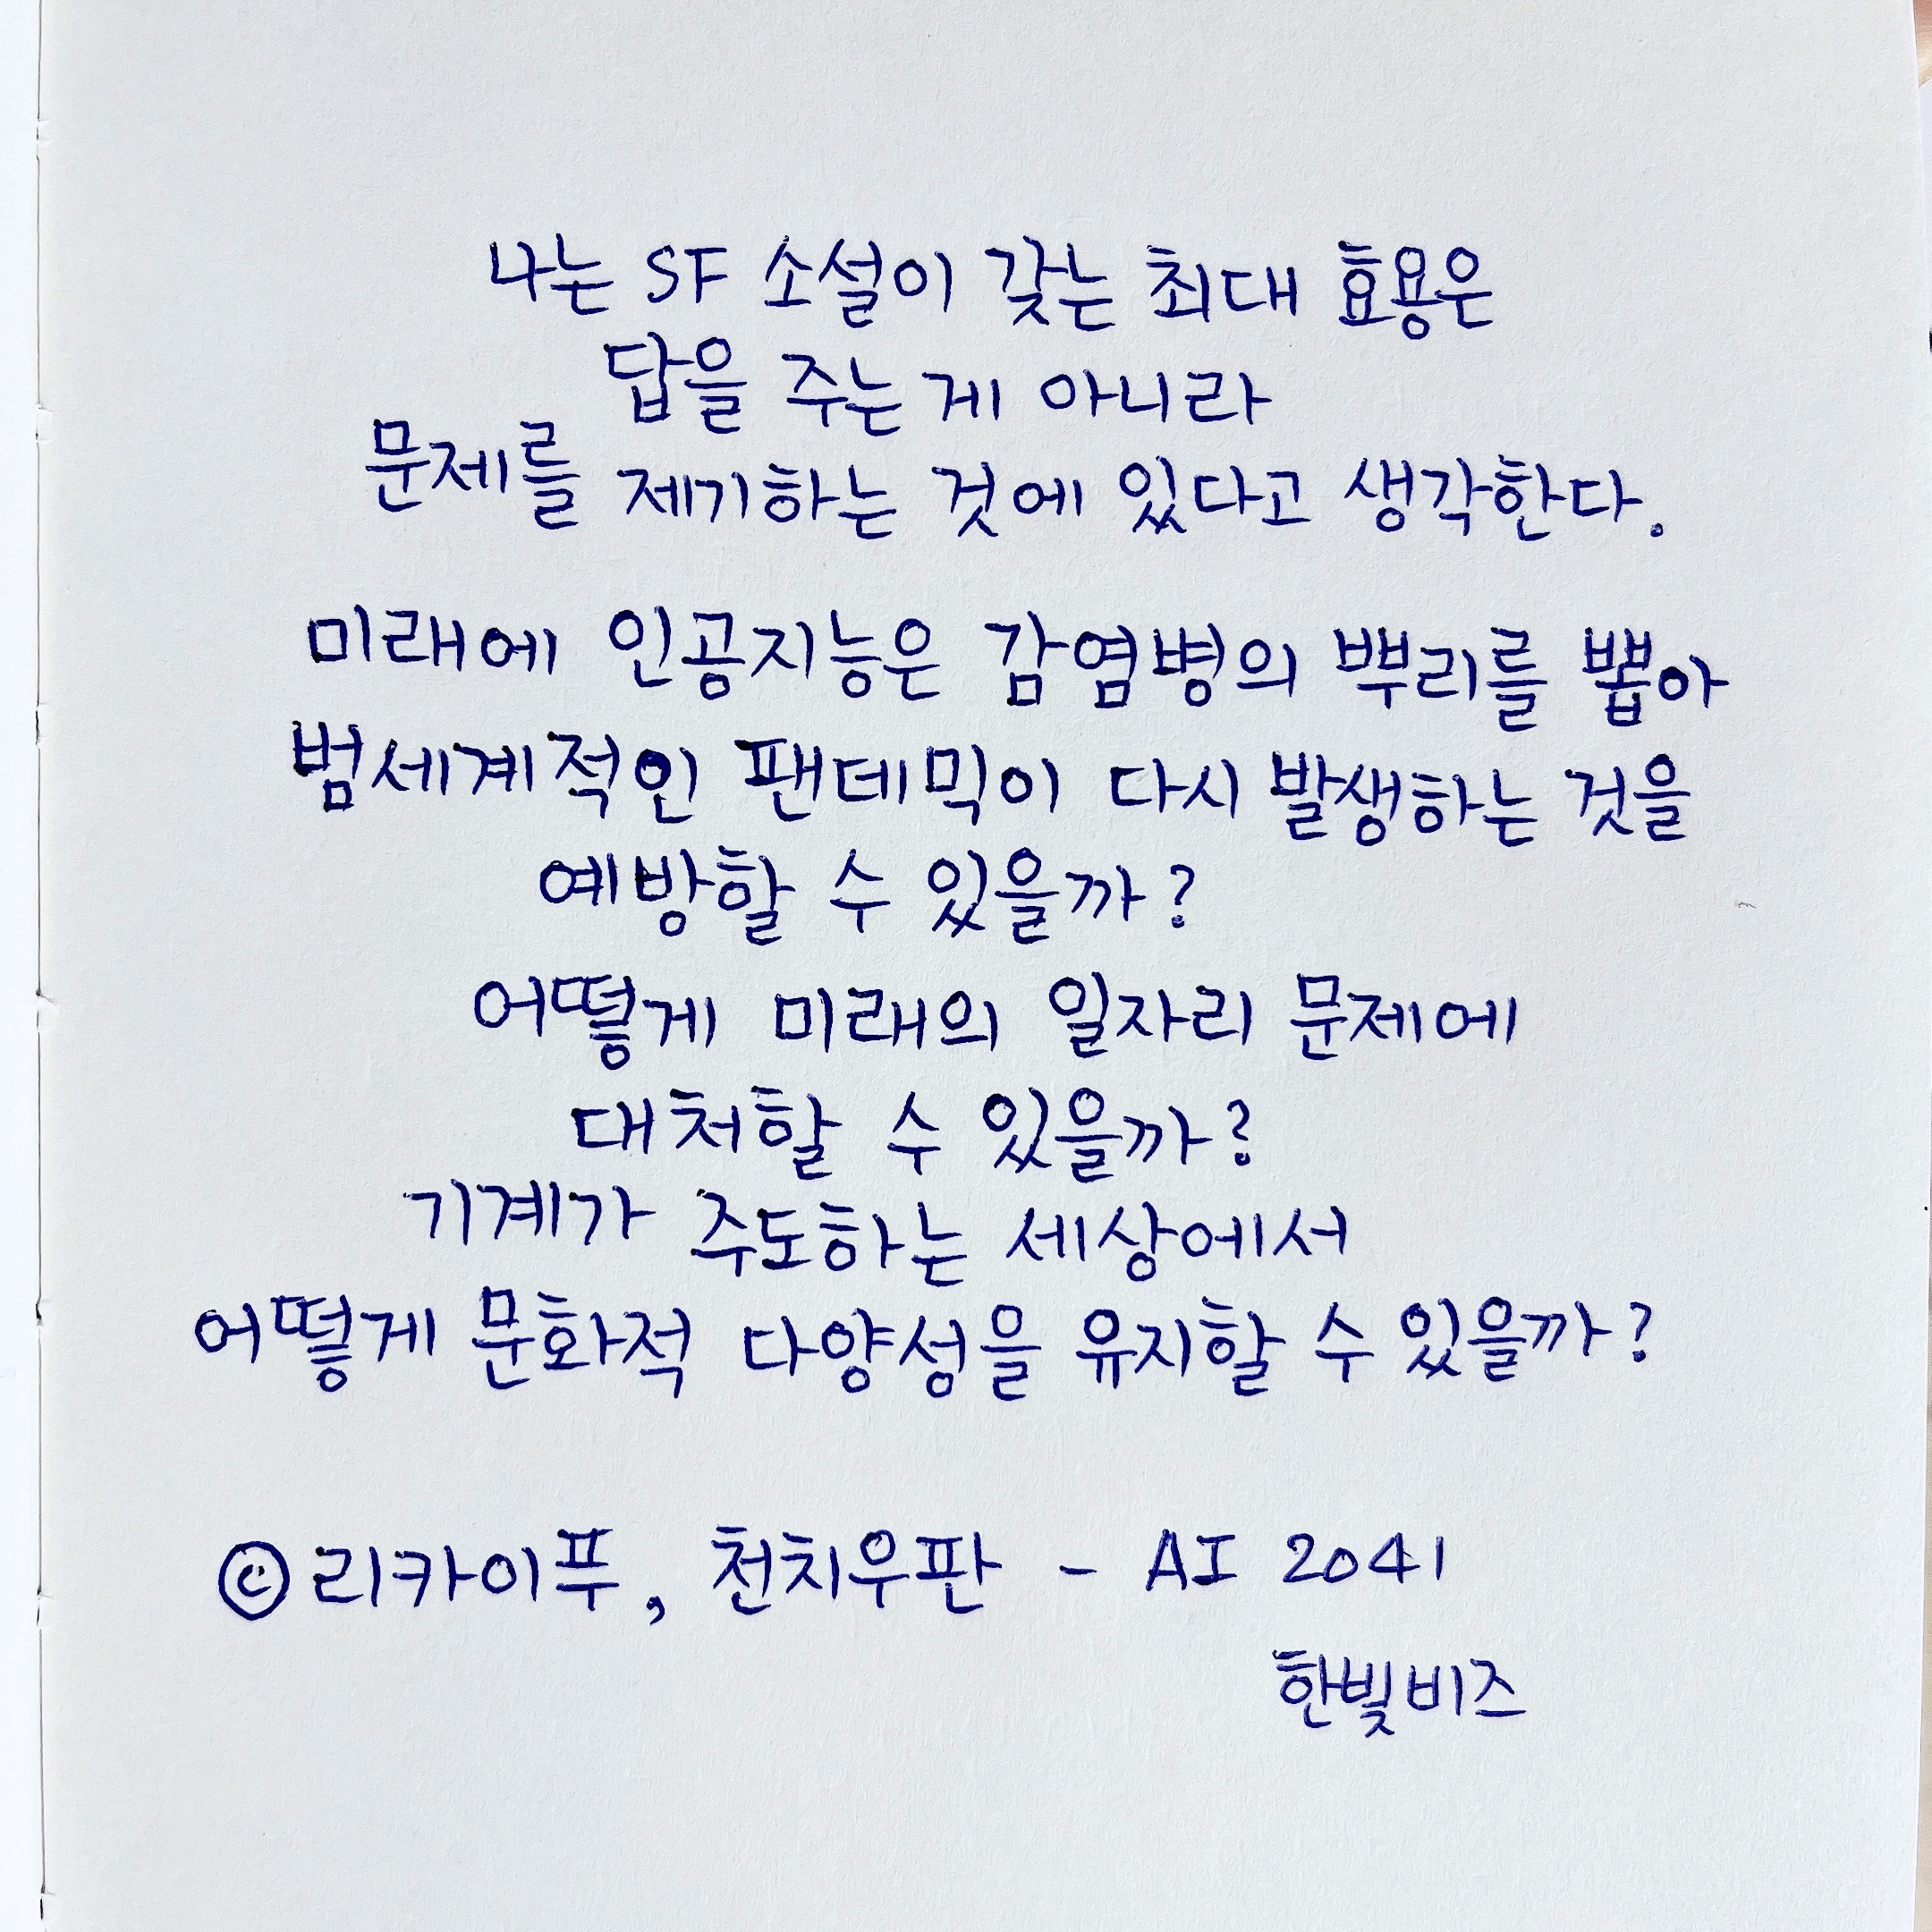 나는 SF 소설이 갖는 최대 효용은
답을 주는 게 아니라
문제를 제기하는 것에 있다고 생각한다.
미래에 인공지능은 감염병의 뿌리를 뽑아
범세계적인 팬데믹이 다시 발생하는 것을
예방할 수 있을까?
어떻게 미래의 일자리 문제에
대처할 수 있을까?
기계가 주도하는 세상에서
어떻게 문화적 다양성을 유지할 수 있을까?
© 리카이푸, 천치우판 - AI 2041
한빛비즈